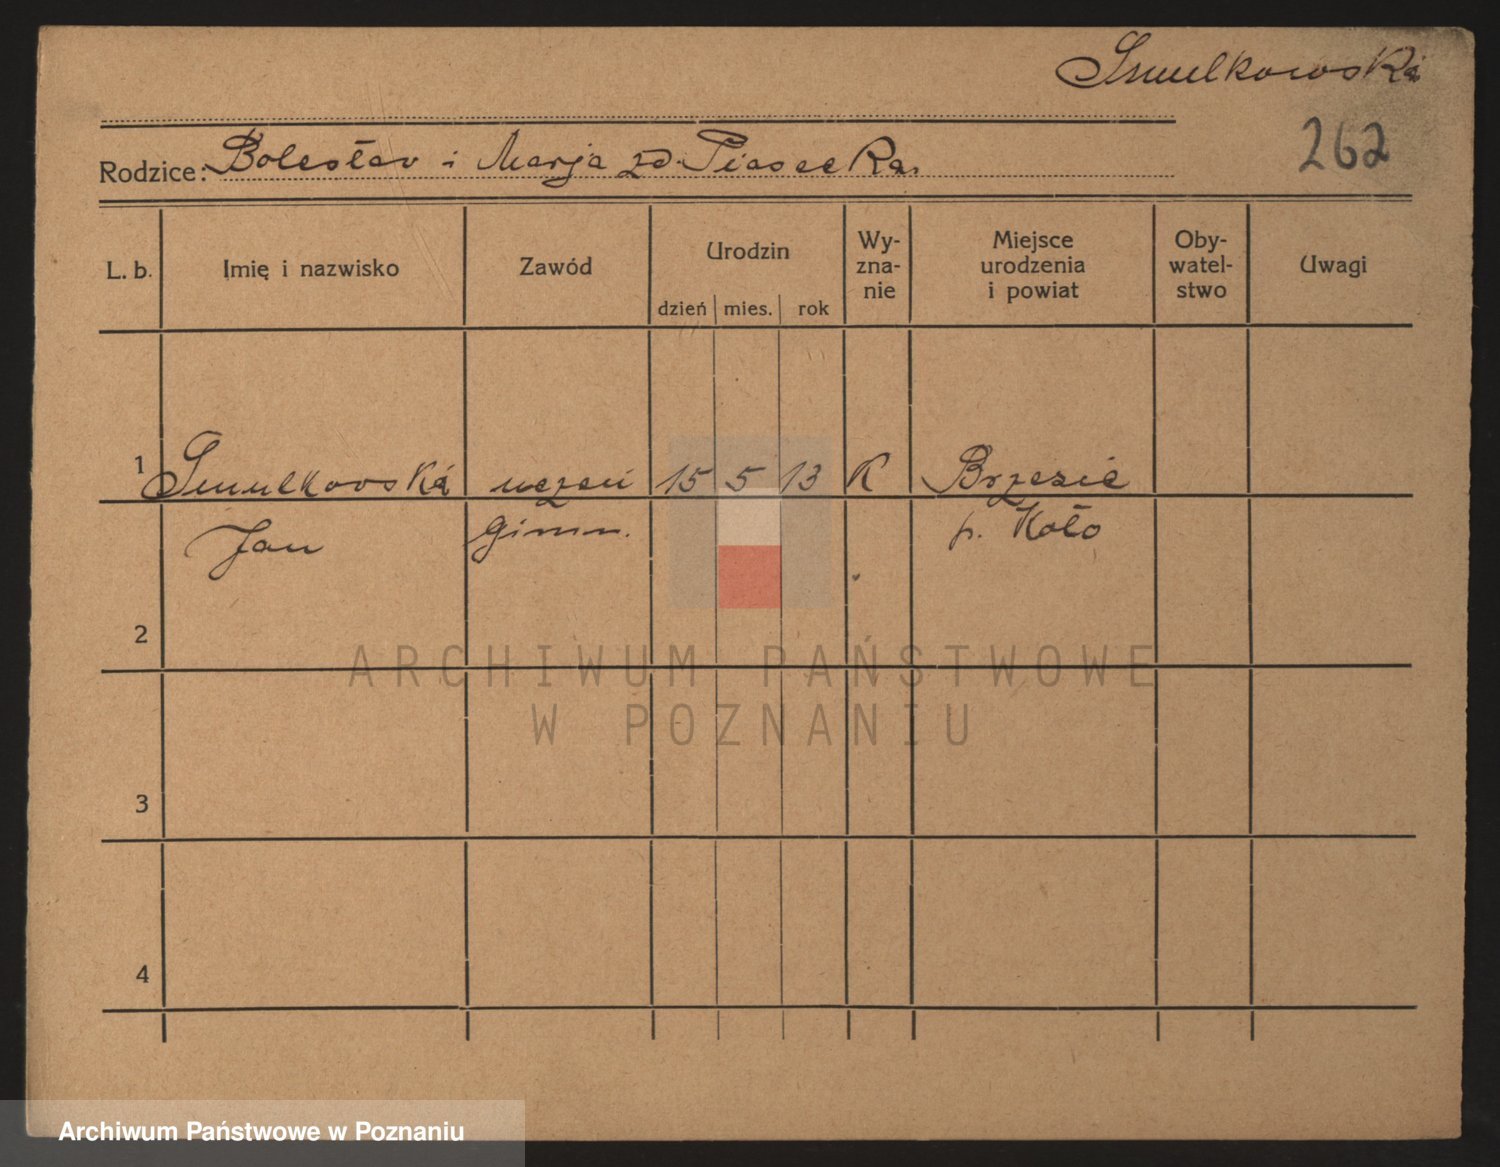 Smulkowski
262
Rodzice: Bolesław i Marja zd. Piasecka.
L. b. Imię i nazwisko Zawód Urodzin dzień mies. rok Wy-zna-nie Miejsce urodzenia i powiat Oby-watel-stwo Uwagi
1 Smulkowski uczeń 15 5 13 K Brzezie
Jan Gimn. p. Koło
2
ARCHIWUM PAŃSTWOWE
W POZNANIU
3
4
Archiwum Państwowe w Poznaniu